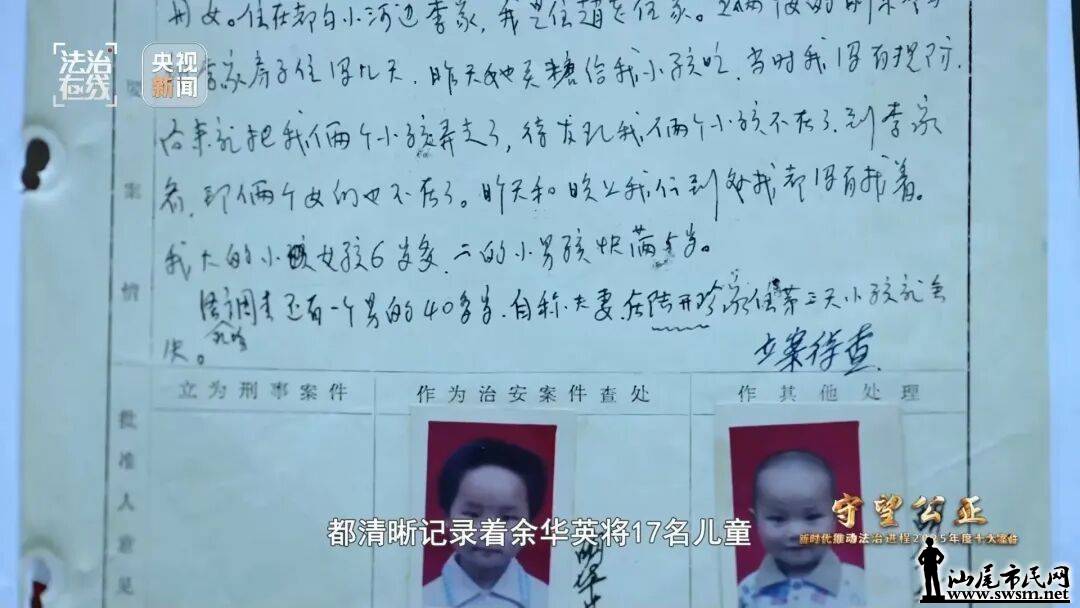 法治在线
央视新闻
用女。住在都白小河边李家，我是住赵老伍家。
李家房子住得几天，昨天她买糖给我小孩吃，当时我没有提防，
后来就把我们俩个小孩弄走了，待发现我们俩个小孩不在了，到李家
看，那俩个女的也不在了。昨天和晚上我们到处找都没有找着。
我大的小孩女孩6岁多，二的小男孩快满5岁。
还有一个男的40多岁，自称夫妻，在陆开珍家住第三天小孩就
立案侦查
案
情
立为刑事案件
作为治安案件查处
作其他处理
批
准
人
意
见
都清晰记录着余华英将17名儿童
守望公正
新时代推动法治进程2025年度十大案件
汕尾市民网
www.swsm.net